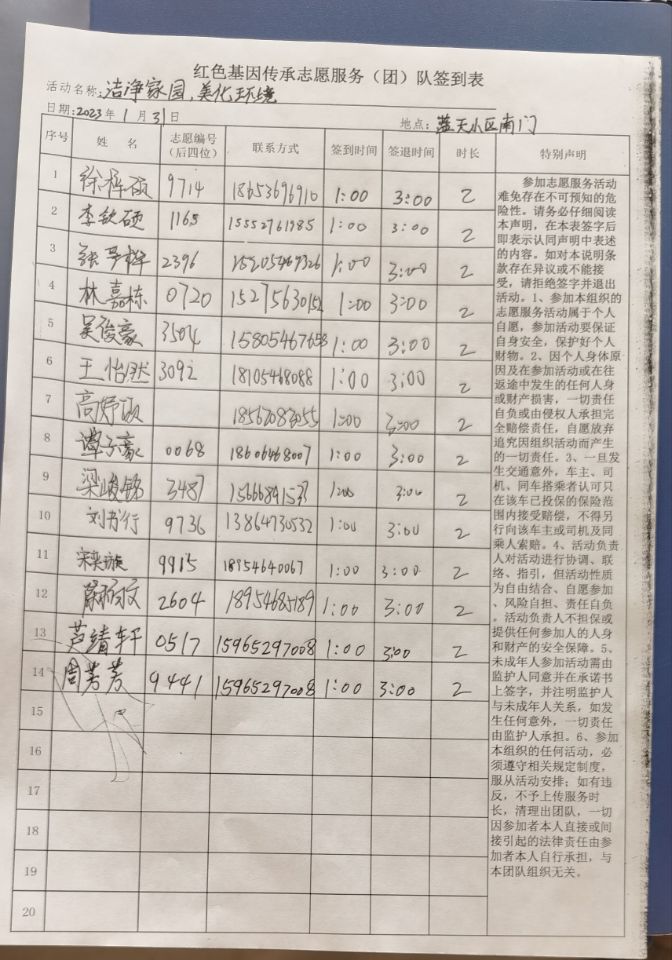 红色基因传承志愿服务（团）队签到表
活动名称：洁净家园，美化环境
日期：2023年1月31日 地点：蓝天小区南门
序号 姓 名 志愿编号（后四位） 联系方式 签到时间 签退时间 时长 特别声明
1 徐梓硕 9714 18653696910 1:00 3:00 2
2 李钦硕 1165 15552761985 1:00 3:00 2
3 2396 15205469326 1:00 3:00 2
4 林嘉栋 0720 1:00 3:00 2
5 吴俊豪 3504 15805467658 1:00 3:00 2
6 王怡然 3092 18105468088 1:00 3:00 2
7 1:00 3:00 2
8 谭子豪 0068 18606468007 1:00 3:00 2
9 梁峻铭 3487 1:00 3:00 2
10 9736 13864730532 1:00 3:00 2
11 9915 18954640067 1:00 3:00 2
12 2604 18954685189 1:00 3:00 2
13 芦靖轩 0517 15965297008 1:00 3:00 2
14 周芳芳 9441 15965297008 1:00 3:00 2
15
16
17
18
19
20
参加志愿服务活动
难免存在不可预知的危
险性。请务必仔细阅读
本声明，在本表签字后
即表示认同声明中表述
的内容。如对本说明条
款存在异议或不能接
受，请拒绝签字并退出
活动。1、参加本组织的
志愿服务活动属于个人
自愿，参加活动要保证
自身安全，保护好个人
财物。2、因个人身体原
因及在参加活动或在往
返途中发生的任何人身
或财产损害，一切责任
自负或由侵权人承担完
全赔偿责任，自愿放弃
追究因组织活动而产生
的一切责任。3、一旦发
生交通意外，车主、司
机、同车搭乘者认可只
在该车已投保的保险范
围内接受赔偿，不得另
行向该车主或司机及同
乘人索赔。4、活动负责
人对活动进行协调、联
络、指引，但活动性质
为自由结合、自愿参加
、风险自担、责任自负
。活动负责人不担保或
提供任何参加人的人身
和财产的安全保障。5、
未成年人参加活动需由
监护人同意并在承诺书
上签字，并注明监护人
与未成年人关系，如发
生任何意外，一切责任
由监护人承担。6、参加
本组织的任何活动，必
须遵守相关规定制度，
服从活动安排；如有违
反，不予上传服务时
长，清理出团队，一切
因参加者本人直接或间
接引起的法律责任由参
加者本人自行承担，与
本团队组织无关。